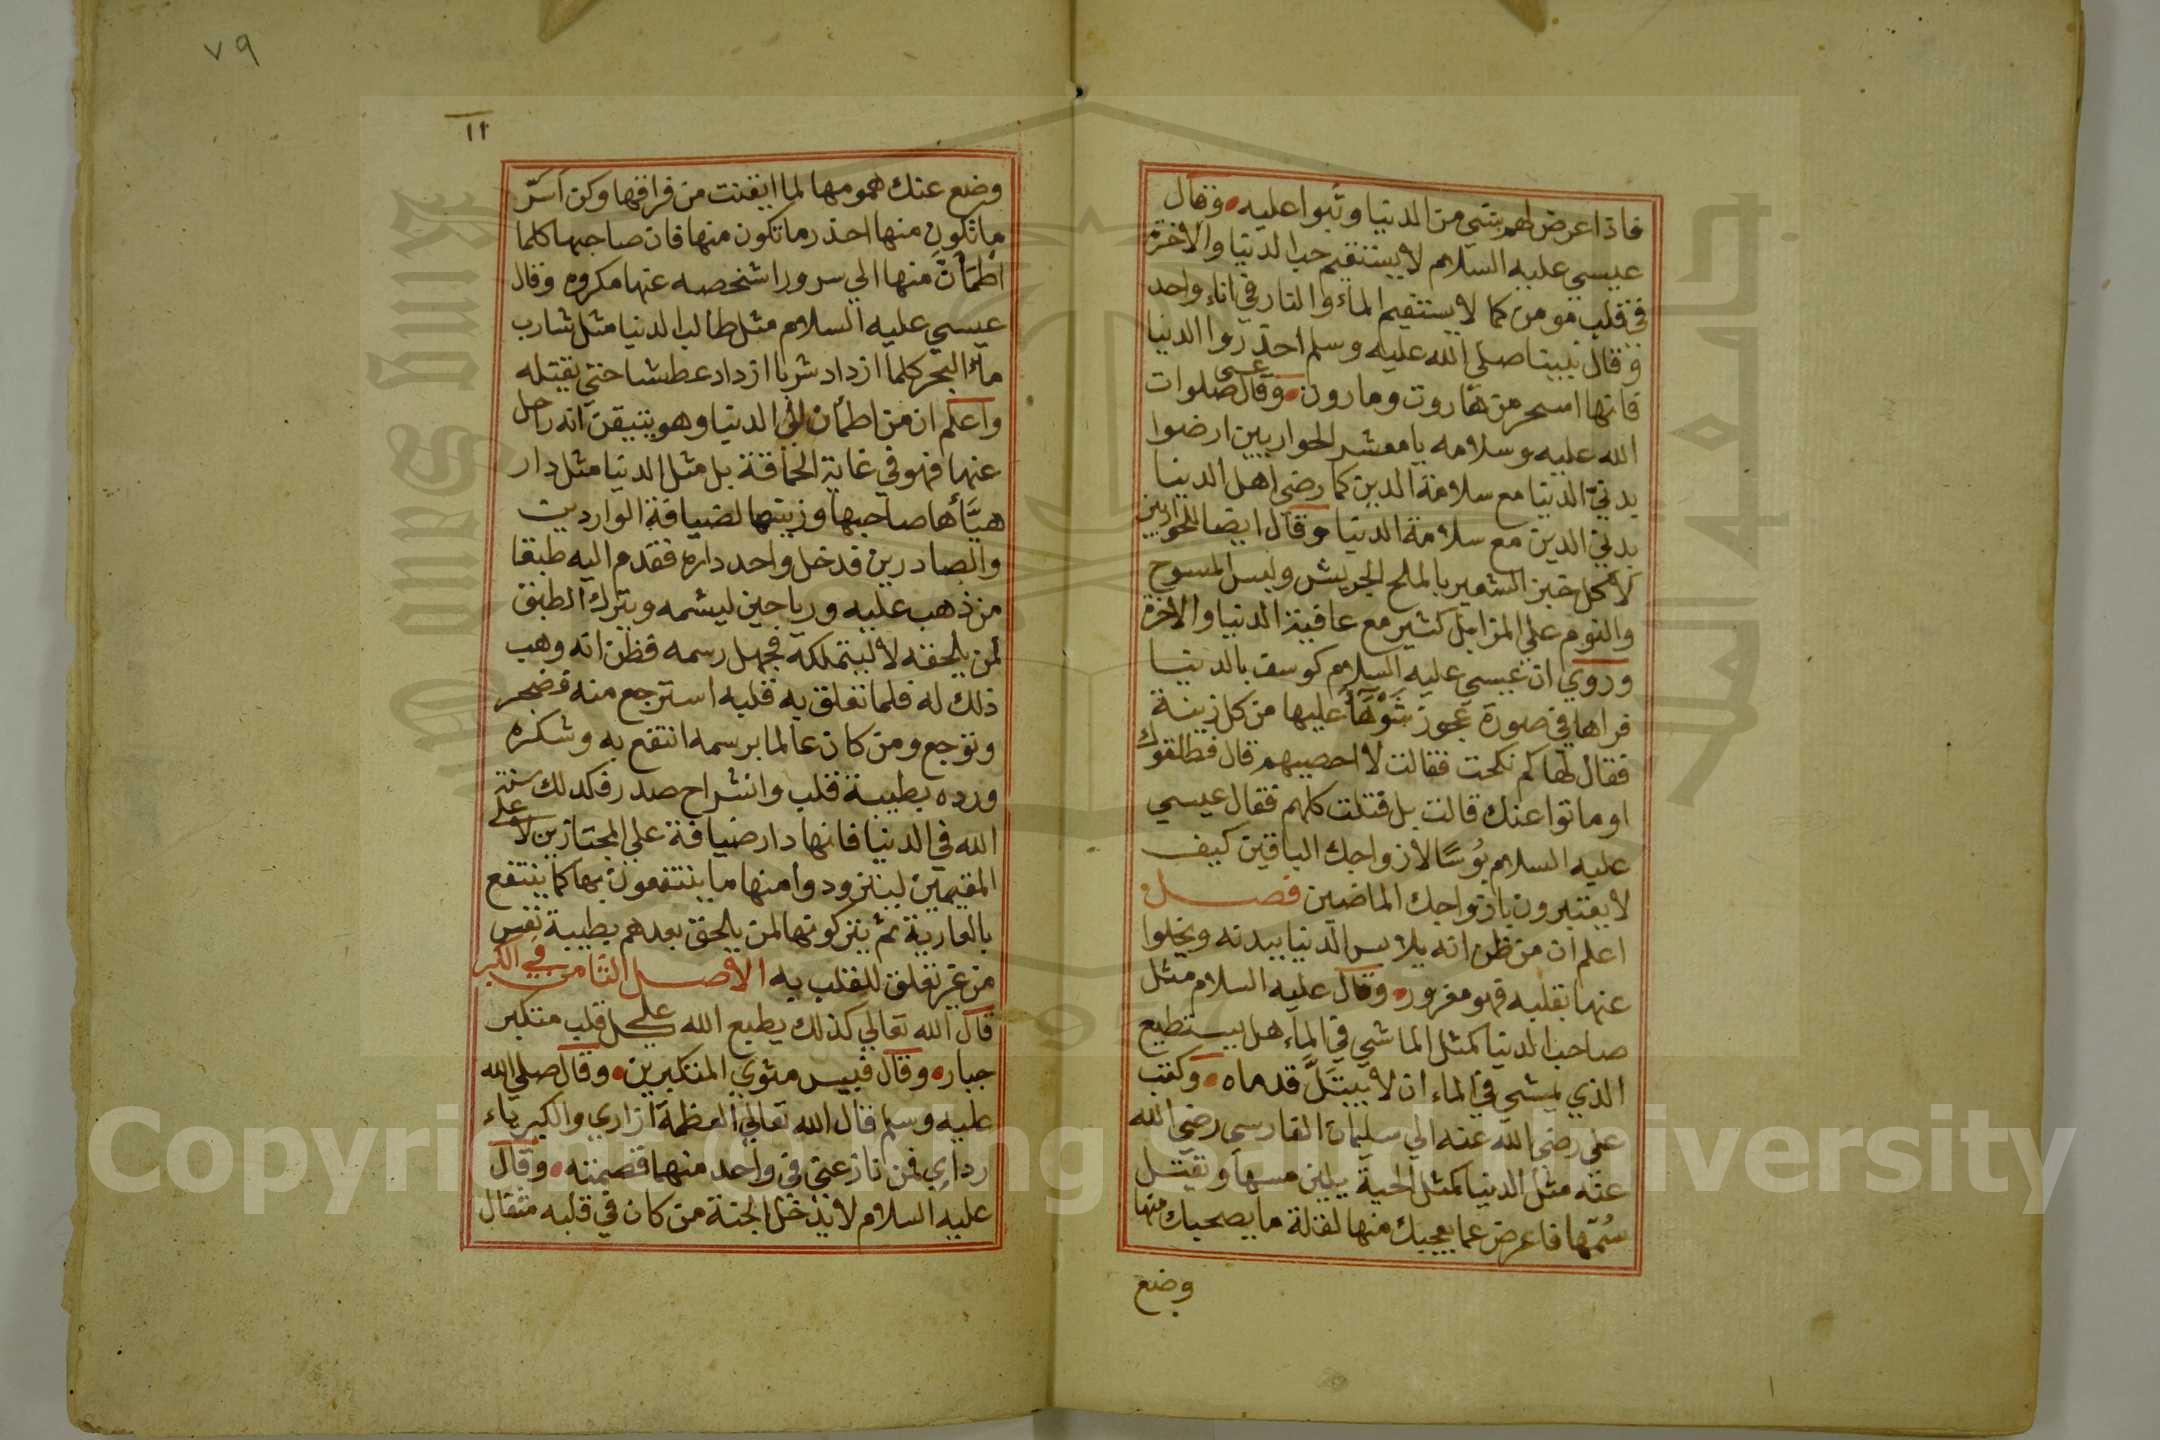 فاذا عرض لهم شي من الدنيا وثبوا عليه وقال
عيسي عليه السلام لا يستقيم حب الدنيا والاخرة
في قلب مومن كما لا يستقيم الماء والنار في اناء واحد
وقال نبينا صلي الله عليه وسلم احذروا الدنيا
فانها اسحر من هاروت وماروت وقال عيسى صلوات
الله عليه وسلامه يا معشر الحواريين ارضوا
بدني الدنيا مع سلامة الدين كما رضي اهل الدنيا
بدني الدين مع سلامة الدنيا وقال ايضا للحواريين
لاكل خبز الشعير بالملح الجريش ولبس المسوح
والنوم علي المزابل كثير مع عافية الدنيا والاخرة
وروي ان عيسي عليه السلام كوسف بالدنيا
فراها في صورة عجوز شوهآء عليها من كل زينة
فقال لها كم نكحت فقالت لا احصيهم قال فطلقوك
او ماتوا عنك قالت بل قتلت كلهم فقال عيسي
عليه السلام بؤسا لازواجك الباقين كيف
لا يعتبرون بازواجك الماضين فصل
اعلم ان من ظن انه يلابس الدنيا ببدنه ويخلوا
عنها بقلبه فهو مغرور وقال عليه السلام مثل
صاحب الدنيا كمثل الماشي في الماء هل يستطيع
الذي يمشي في الماء ان لا يبتل قدماه وكتب
علي رضي الله عنه الي سليمان الفارسي رضي الله
عنه مثل الدنيا كمثل الحية يلين مسها وتقتل
سمها فاعرض عما يعجبك منها لقلة ما يصحبك منها
وضع
٧٩
١١
وضع عنك همومها لما ايقنت من فراقها وكن اسر
ما تكون منها احذر ما تكون منها فان صاحبها كلما
اطمأن منها الي سرور اشخصه عنها مكروه وقال
عيسي عليه السلام مثل طالب الدنيا مثل شارب
مآء البحر كلما ازداد شربا ازداد عطشا حتي يقتله
واعلم ان من اطمأن الي الدنيا وهو يتيقن انه راحل
عنها فهو في غاية الحماقة بل مثل الدنيا مثل دار
هيأها صاحبها وزينها لضيافة الواردين
والصادرين فدخل واحد داره فقدم اليه طبقا
من ذهب عليه ورياحين ليشمه ويترك الطبق
لمن يلحقه لا ليتملكه فجهل رسمه فظن انه وهب
ذلك له فلما تعلق به قلبه استرجع منه فضجر
وتوجع ومن كان عالما برسمه انتفع به وشكره
ورده بطيبة قلب وانشراح صدر فكذلك سنة
الله في الدنيا فانها دار ضيافة علي المجتازين لا على
المقيمين ليتزودوا منها ما ينتفعون بها كما ينتفع
بالعارية ثم يتركونها لمن يلحق بعدهم بطيبة نفس
من غير تعلق للقلب به الاصل الثامن في الكبر
قال الله تعالي كذلك يطبع الله علي كل قلب متكبر
جبار وقال فبيس مثوي المتكبرين وقال صلي الله
عليه وسلم قال الله تعالي العظمة ازاري والكبرياء
رداي فمن نازعني في واحد منهما قصمته وقال
عليه السلام لا يدخل الجنة من كان في قلبه مثقال
Copyright © King Saud University
King Saud University
1957